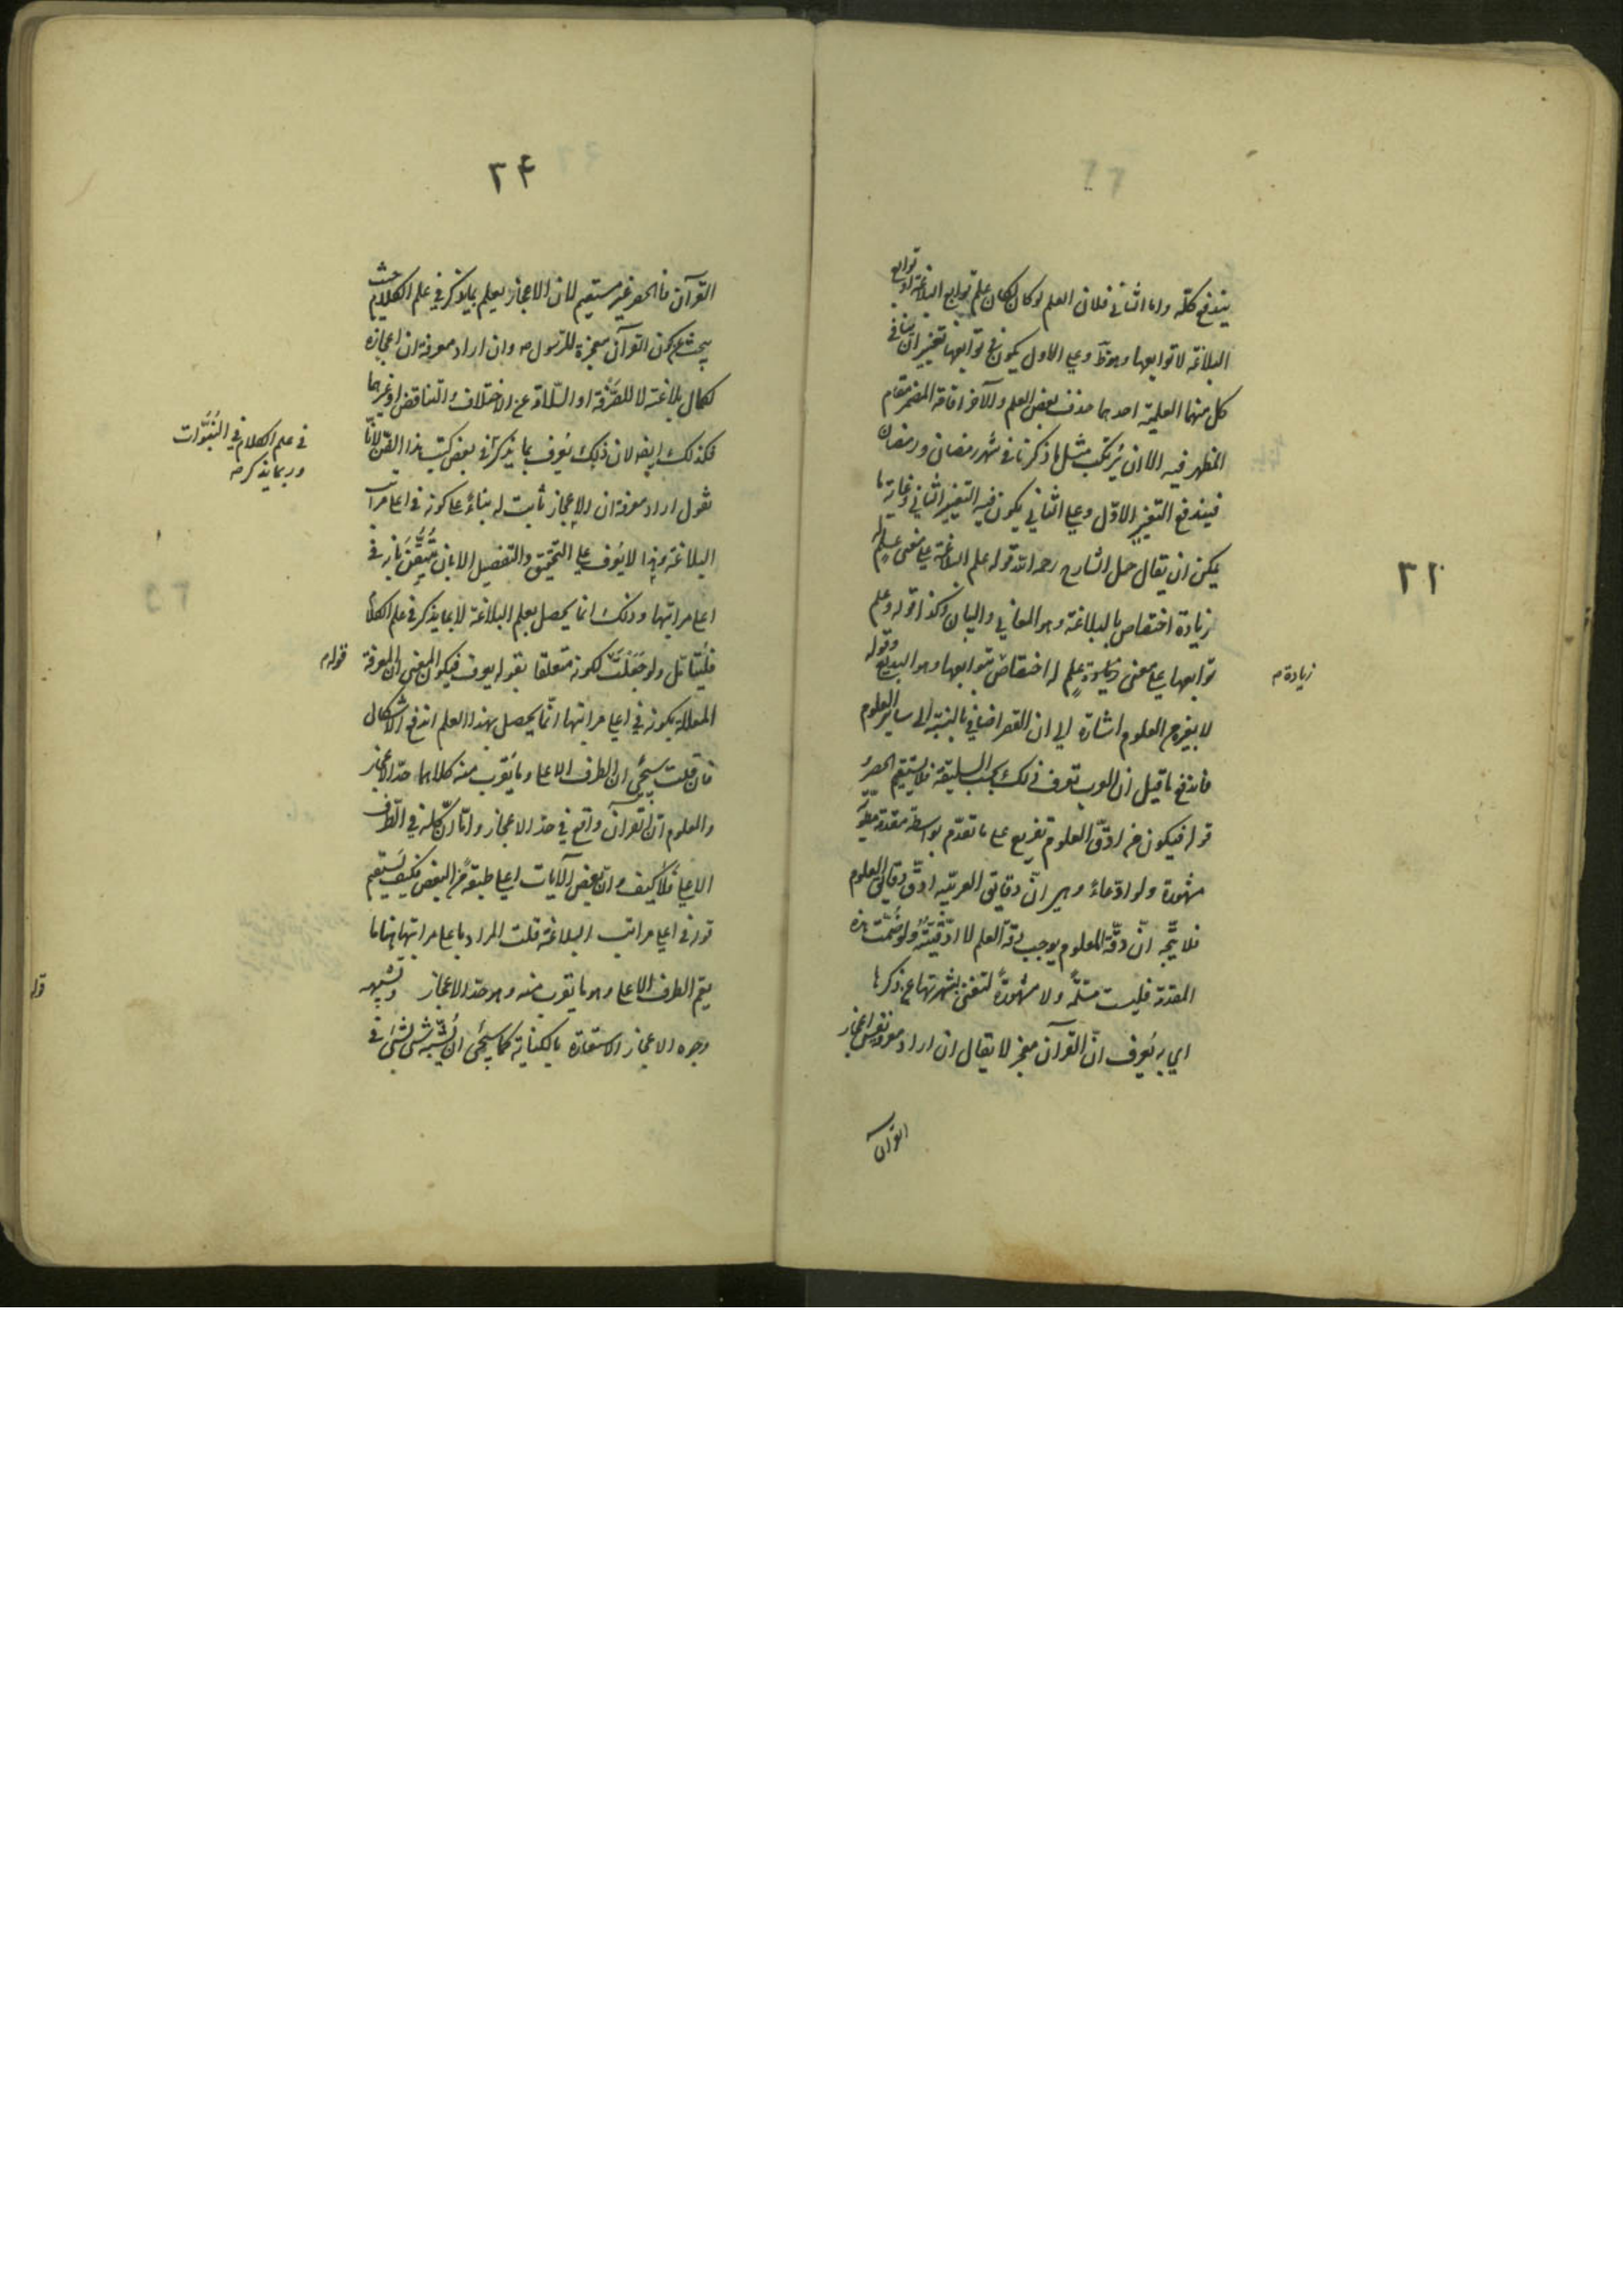 يندفع كله واما الثاني فلان العلم لو كان لكان علم توابع البلاغة او توابع
البلاغة لا توابعها وهو ظ وعلى الاول يكون في توابعها تغييران في
كل منهما العلمية احدهما حذف بعض العلم والآخر اقامة المضمر مقام
المظهر فيه الا ان يرتكب مثل ما ذكرنا في شهر رمضان ورمضان
فيندفع التغيير الاول وعلى الثاني يكون فيه التغيير الثاني وغاية ما
يمكن ان يقال حمل الشارح رحمه الله قوله علم البلاغة على معنى علم له
زيادة اختصاص بالبلاغة وهو المعاني والبيان وكذا قوله وعلم
توابعها على معنى علم له اختصاص بتوابعها وهو البديع وقوله
زيادة م
لا بغيره من العلوم اشارة الى ان القصر اضافي بالنسبة الى ساير العلوم
فاندفع ما قيل ان العرب تعرف ذلك بحسب السليقة فلا يستقيم الحصر
قوله فيكون من ادق العلوم تفريع على ما تقدم بواسطة مقدمة مطوية
مشهورة ولو ادعاء وهي ان دقايق العربية ادق دقايق العلوم
فلا يتجه ان دقة المعلوم يوجب دقة العلم لا ادقيته ولو سلمت هذه
المقدمة فليست مسلمة ولا مشهورة لتغني بشهرتها عن ذكرها
اي به يعرف ان القرآن معجز لا يقال ان اراد معرفة نفس اعجاز
القرآن
٣٢
٢٤
القرآن فالحصر غير مستقيم لان الاعجاز يعلم بما يذكر في علم الكلام حيث
يبحث عن كون القرآن معجزة للرسول ص وان اراد معرفة ان اعجازه
لكمال بلاغته لا للصرفة او السلامة عن الاختلاف والتناقض او غيرهما
فكذلك ايضا لان ذلك يعرف بما يذكر في بعض كتب هذا الفن لانا
في علم الكلام في النبوات
وربما يذكر ص
نقول اراد معرفة ان الاعجاز ثابت له بناء على كونه في اعلى مراتب
البلاغة وهذا لا يعرف على التحقيق والتفصيل الا بان يتيقن بانه في
اعلى مراتبها وذلك انما يحصل بعلم البلاغة لا بما يذكر في علم الكلام
فليتأمل ولو جعلت لكونه متعلقا بقوله يعرف فيكون المعنى ان المعرفة
قوله م
المعللة بكونه في اعلى مراتبها انما يحصل بهذا العلم اندفع الاشكال
فان قلت سيجئ ان الطرف الاعلى وما يقرب منه كلاهما حد الاعجاز
والمعلوم ان القرآن واقع في حد الاعجاز واما ان كله في الطرف
الاعلى فلا كيف وان بعض الآيات اعلى طبقة من البعض فكيف يستقيم
قوله في اعلى مراتب البلاغة قلت المراد باعلى مراتبها ههنا ما
يعم الطرف الاعلى وهو ما يقرب منه وهو حد الاعجاز وتشبيه
قوله
وجوه الاعجاز الاستعارة بالكناية كما سيجئ ان يشبه شئ بشئ في